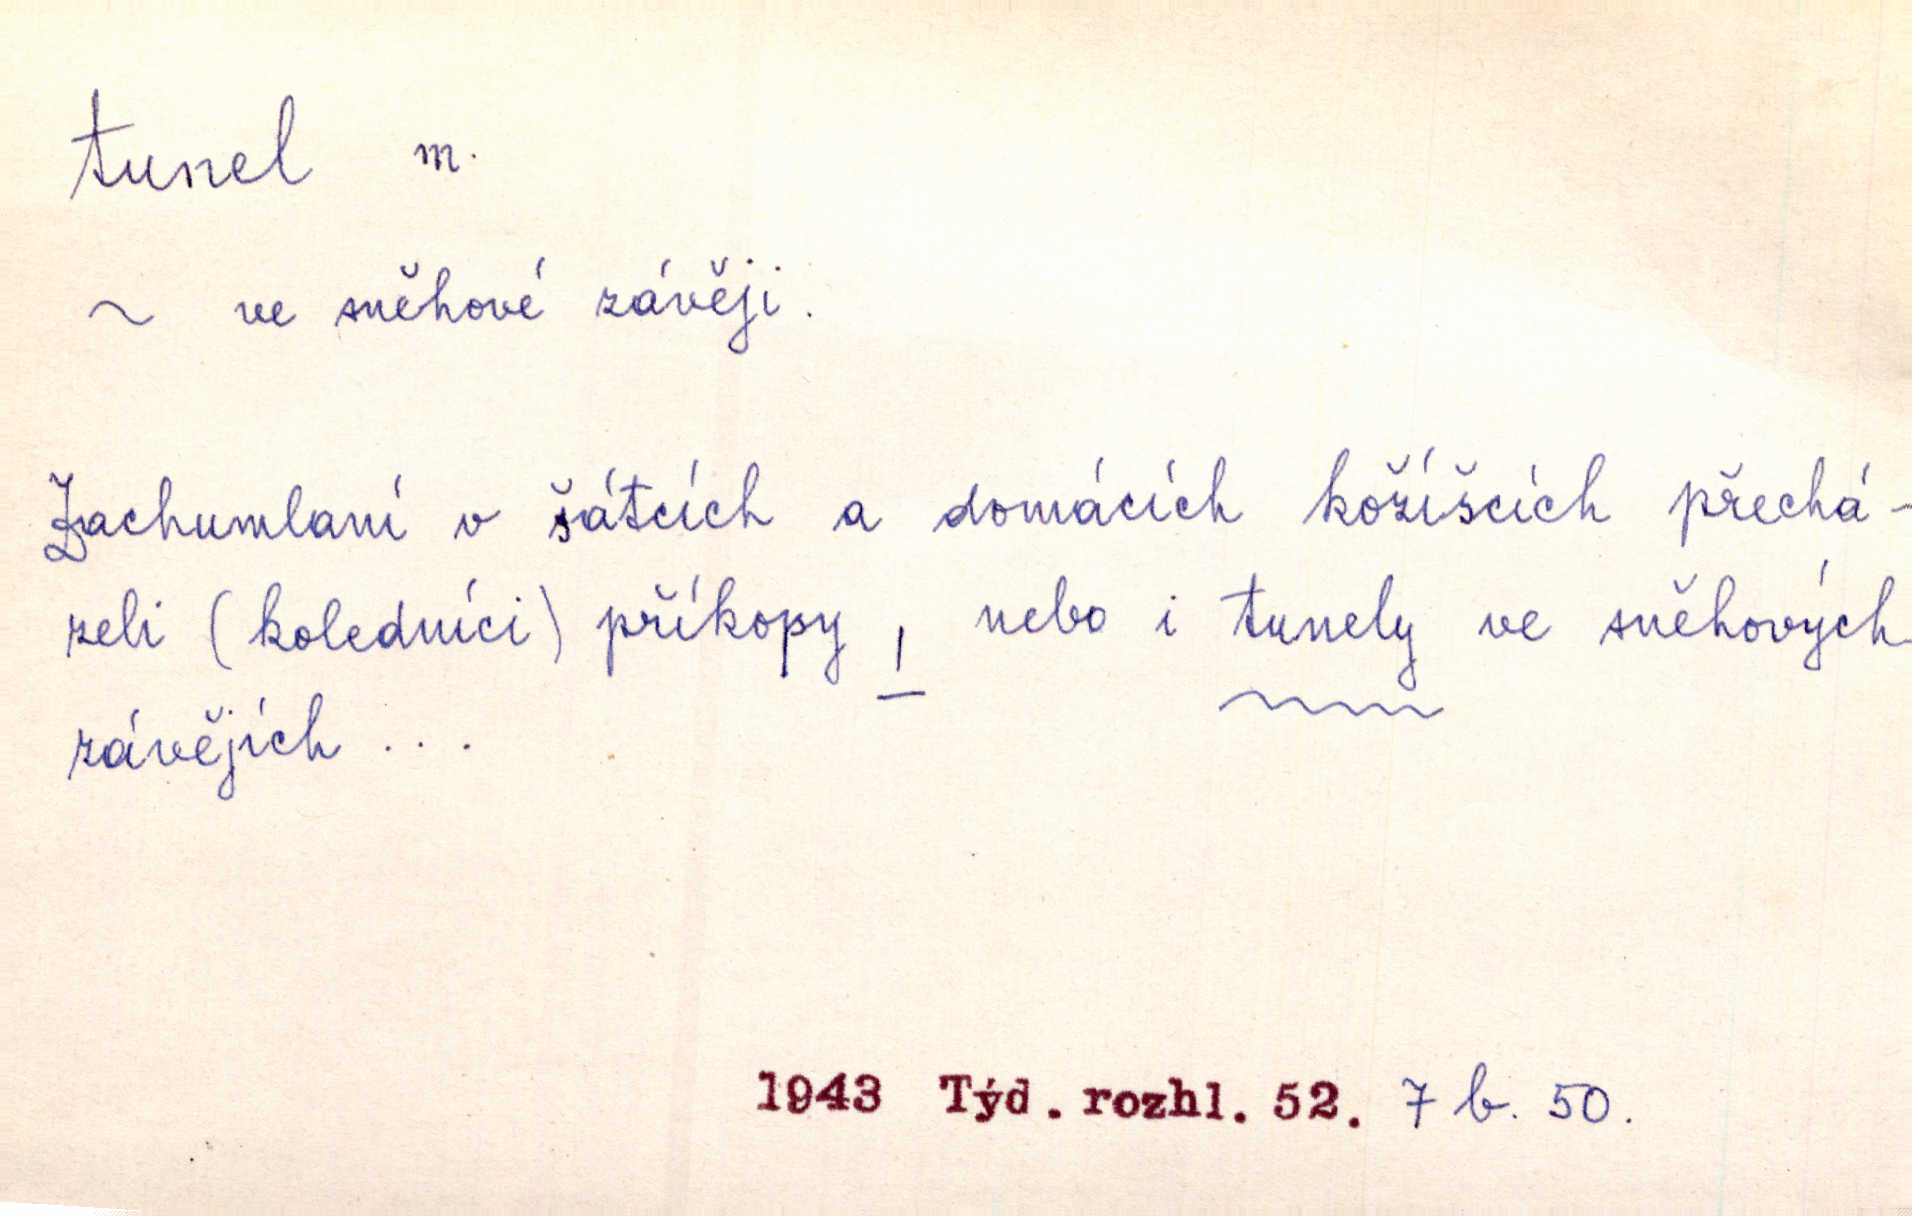 tunel m.
~ ve sněhové závěji.
Zachumlaní v šátcích a domácích kožíšcích přechá-
zeli (koledníci) příkopy ! nebo i tunely ve sněhových
závějích ...
1943 Týd. rozhl. 52. 7 b. 50.